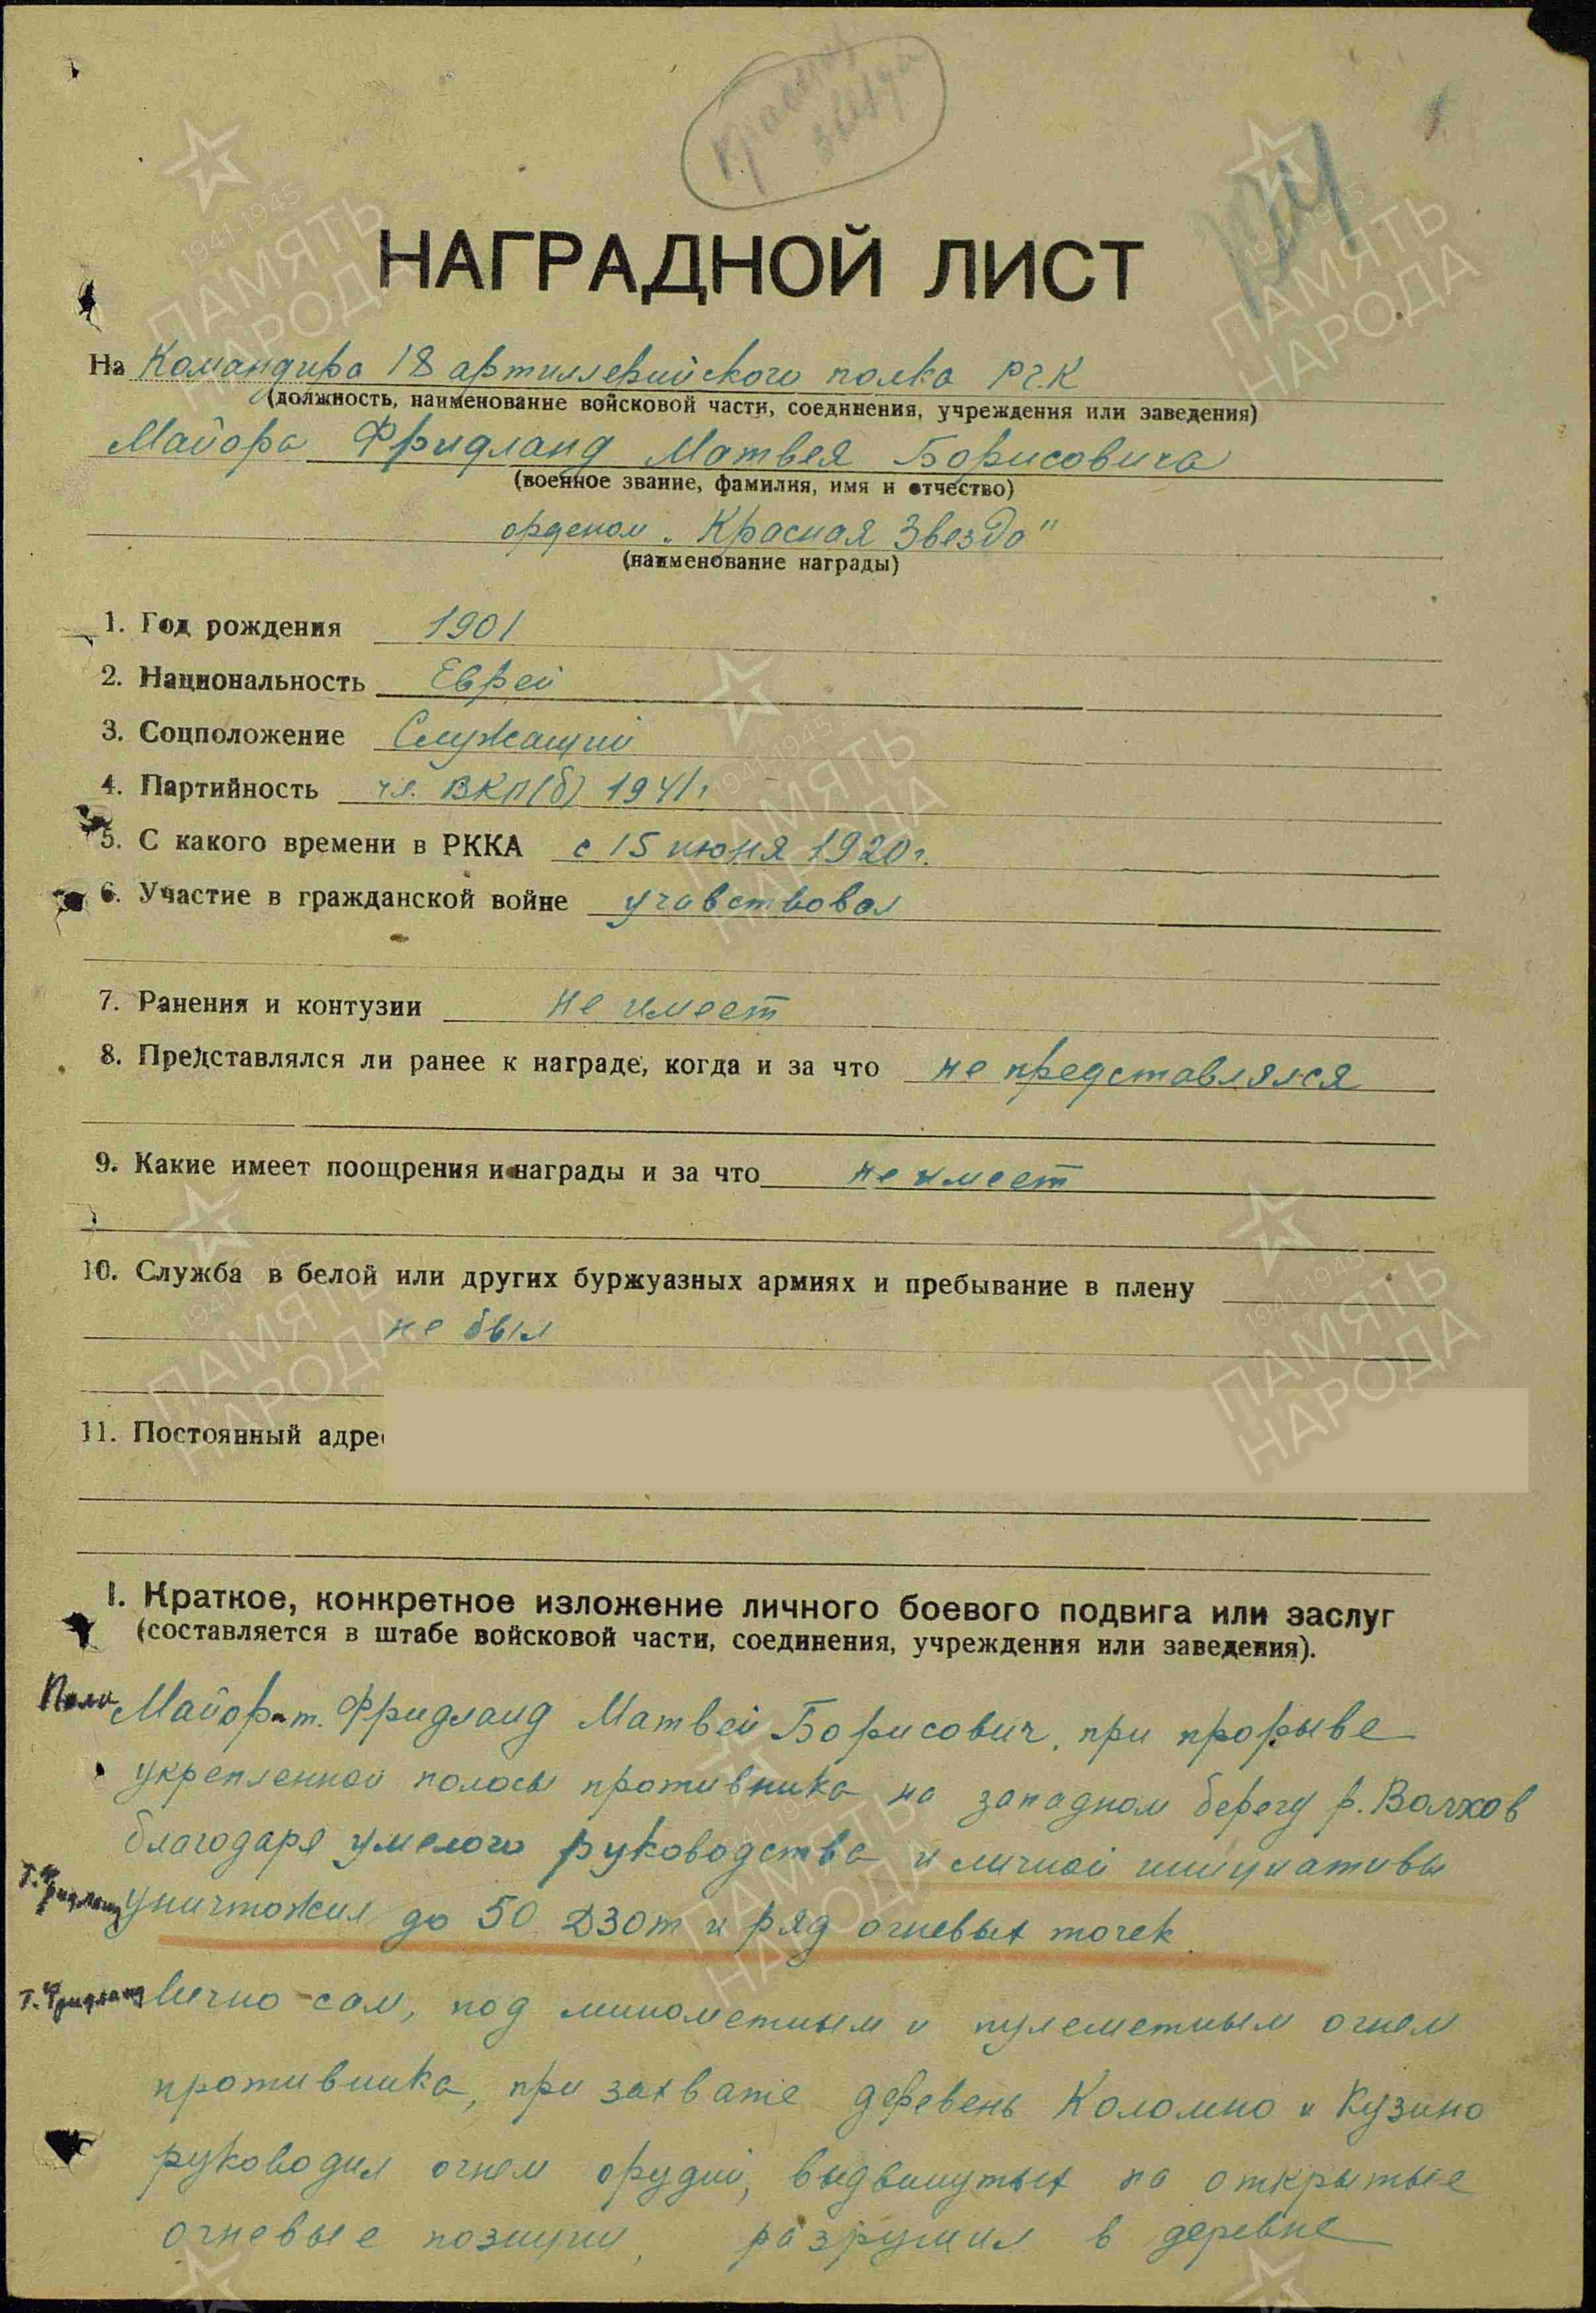 Красная
звезда
НАГРАДНОЙ ЛИСТ
На Командира 18 артиллерийского полка РГК
(должность, наименование войсковой части, соединения, учреждения или заведения)
Майора Фридланд Матвея Борисовича
(военное звание, фамилия, имя и отчество)
орденом „Красная Звезда"
(наименование награды)
1. Год рождения 1901
2. Национальность Еврей
3. Соцположение Служащий
4. Партийность чл. ВКП(б) 1941г
5. С какого времени в РККА с 15 июня 1920г.
6. Участие в гражданской войне учавствовал
7. Ранения и контузии не имеет
8. Представлялся ли ранее к награде, когда и за что не представлялся
9. Какие имеет поощрения и награды и за что не имеет
10. Служба в белой или других буржуазных армиях и пребывание в плену
не был
11. Постоянный адре
I. Краткое, конкретное изложение личного боевого подвига или заслуг
(составляется в штабе войсковой части, соединения, учреждения или заведения).
Майор т. Фридланд Матвей Борисович, при прорыве
укрепленной полосы противника на западном берегу р. Волхов
благодаря умелого руководства и личной инициативы
т. Фридланд уничтожил до 50 ДЗОТ и ряд огневых точек.
т. Фридланд Лично сам, под минометным и пулеметным огнем
противника, при захвате деревень Коломно и Кузино
руководил огнем орудий, выдвинутых на открытые
огневые позиции, разрушил в деревне
1941-1945
ПАМЯТЬ
НАРОДА